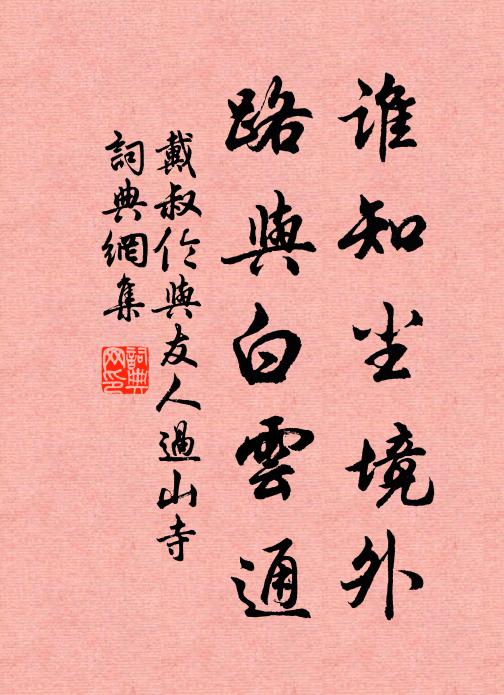 谁知尘境外
路與白雲通
戴叔伦與友人過山寺
詞典網集
詞典网印